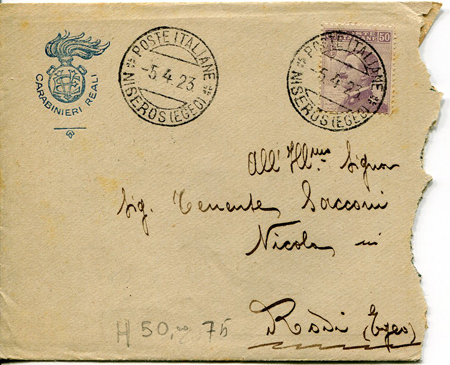 CARABINIERI REALI
POSTE ITALIANE
5.4.23
NISEROS (EGEO)
50
POSTE ITALIANE
5.4.23
NISEROS (EGEO)
All'Ill.mo Signor
Sig. Tenente Sacconi
Nicola in
Rodi (Egeo)
H 50,00 75